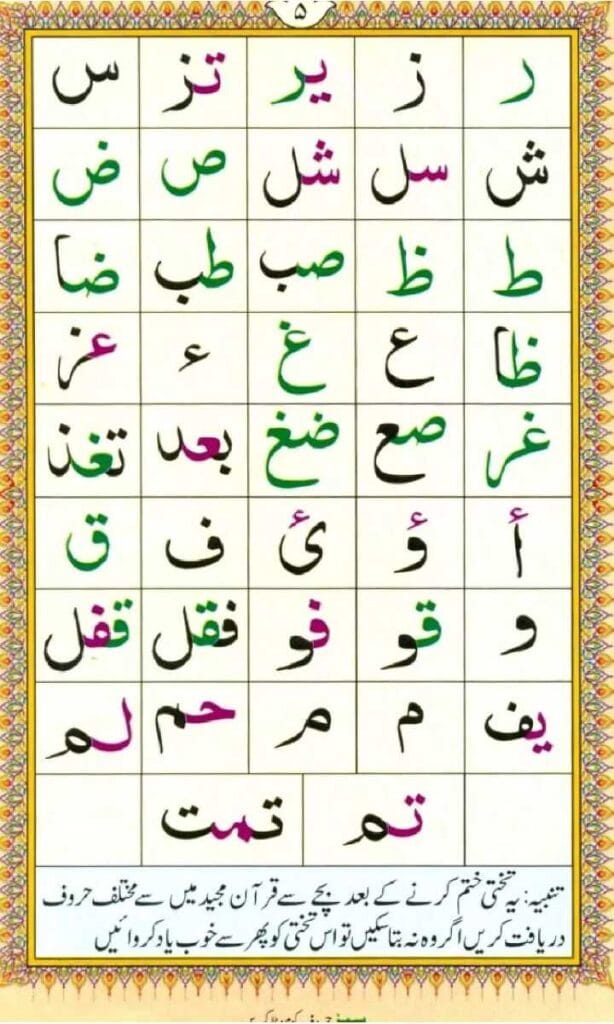 ۵
ر ز یر تز س
ش سل شل ص ض
ط ظ صب طب ضا
ظا ع غ ء عز
غر صع ضغ بعد تغذ
أ ؤ ئ ف ق
و قو فو فقل قفل
یف م م حم لم
تم تمت
تنبیہ: یہ تختی ختم کرنے کے بعد بچے سے قرآن مجید میں سے مختلف حروف
دریافت کریں اگر وہ نہ بتا سکیں تو اس تختی کو پھر سے خوب یاد کروائیں